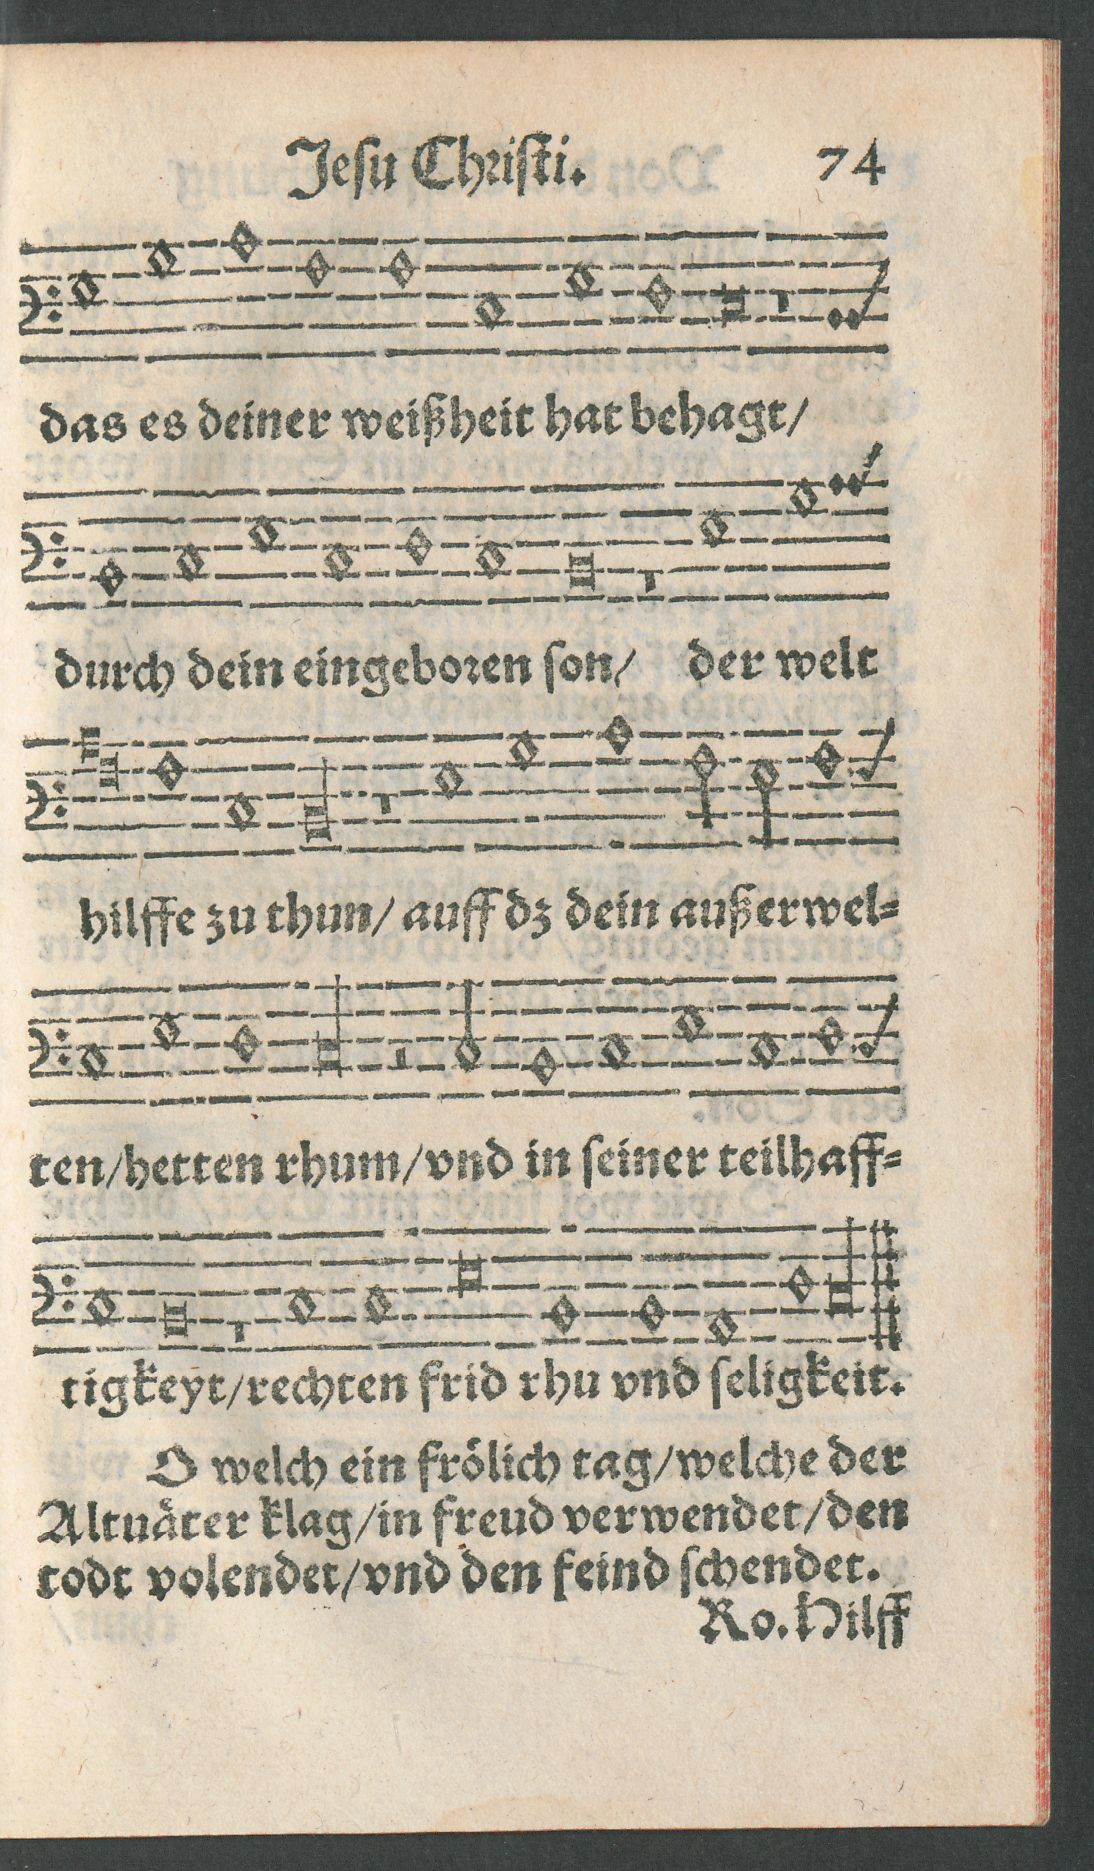 Jesu Christi. 74
das es deiner weißheit hat behagt/
durch dein eingeboren son/ der welt
hilffe zu thun/ auff dz dein außerwel=
ten/hetten rhum/vnd in seiner teilhaff=
tigkeyt/rechten frid rhu vnd seligkeit.
O welch ein frölich tag/welche der
Altuäter klag/in freud verwendet/den
todt volendet/vnd den feind schendet.
Ro. Hilff